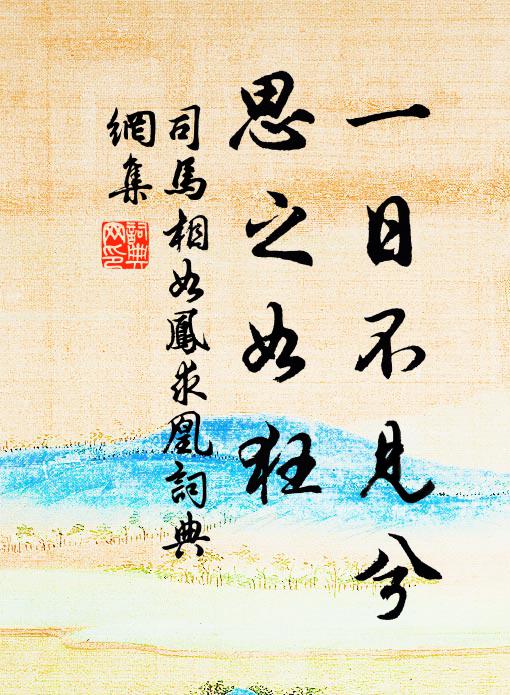 一日不見兮
思之如狂
司馬相如鳳求凰詞典
網集
詞典
網印